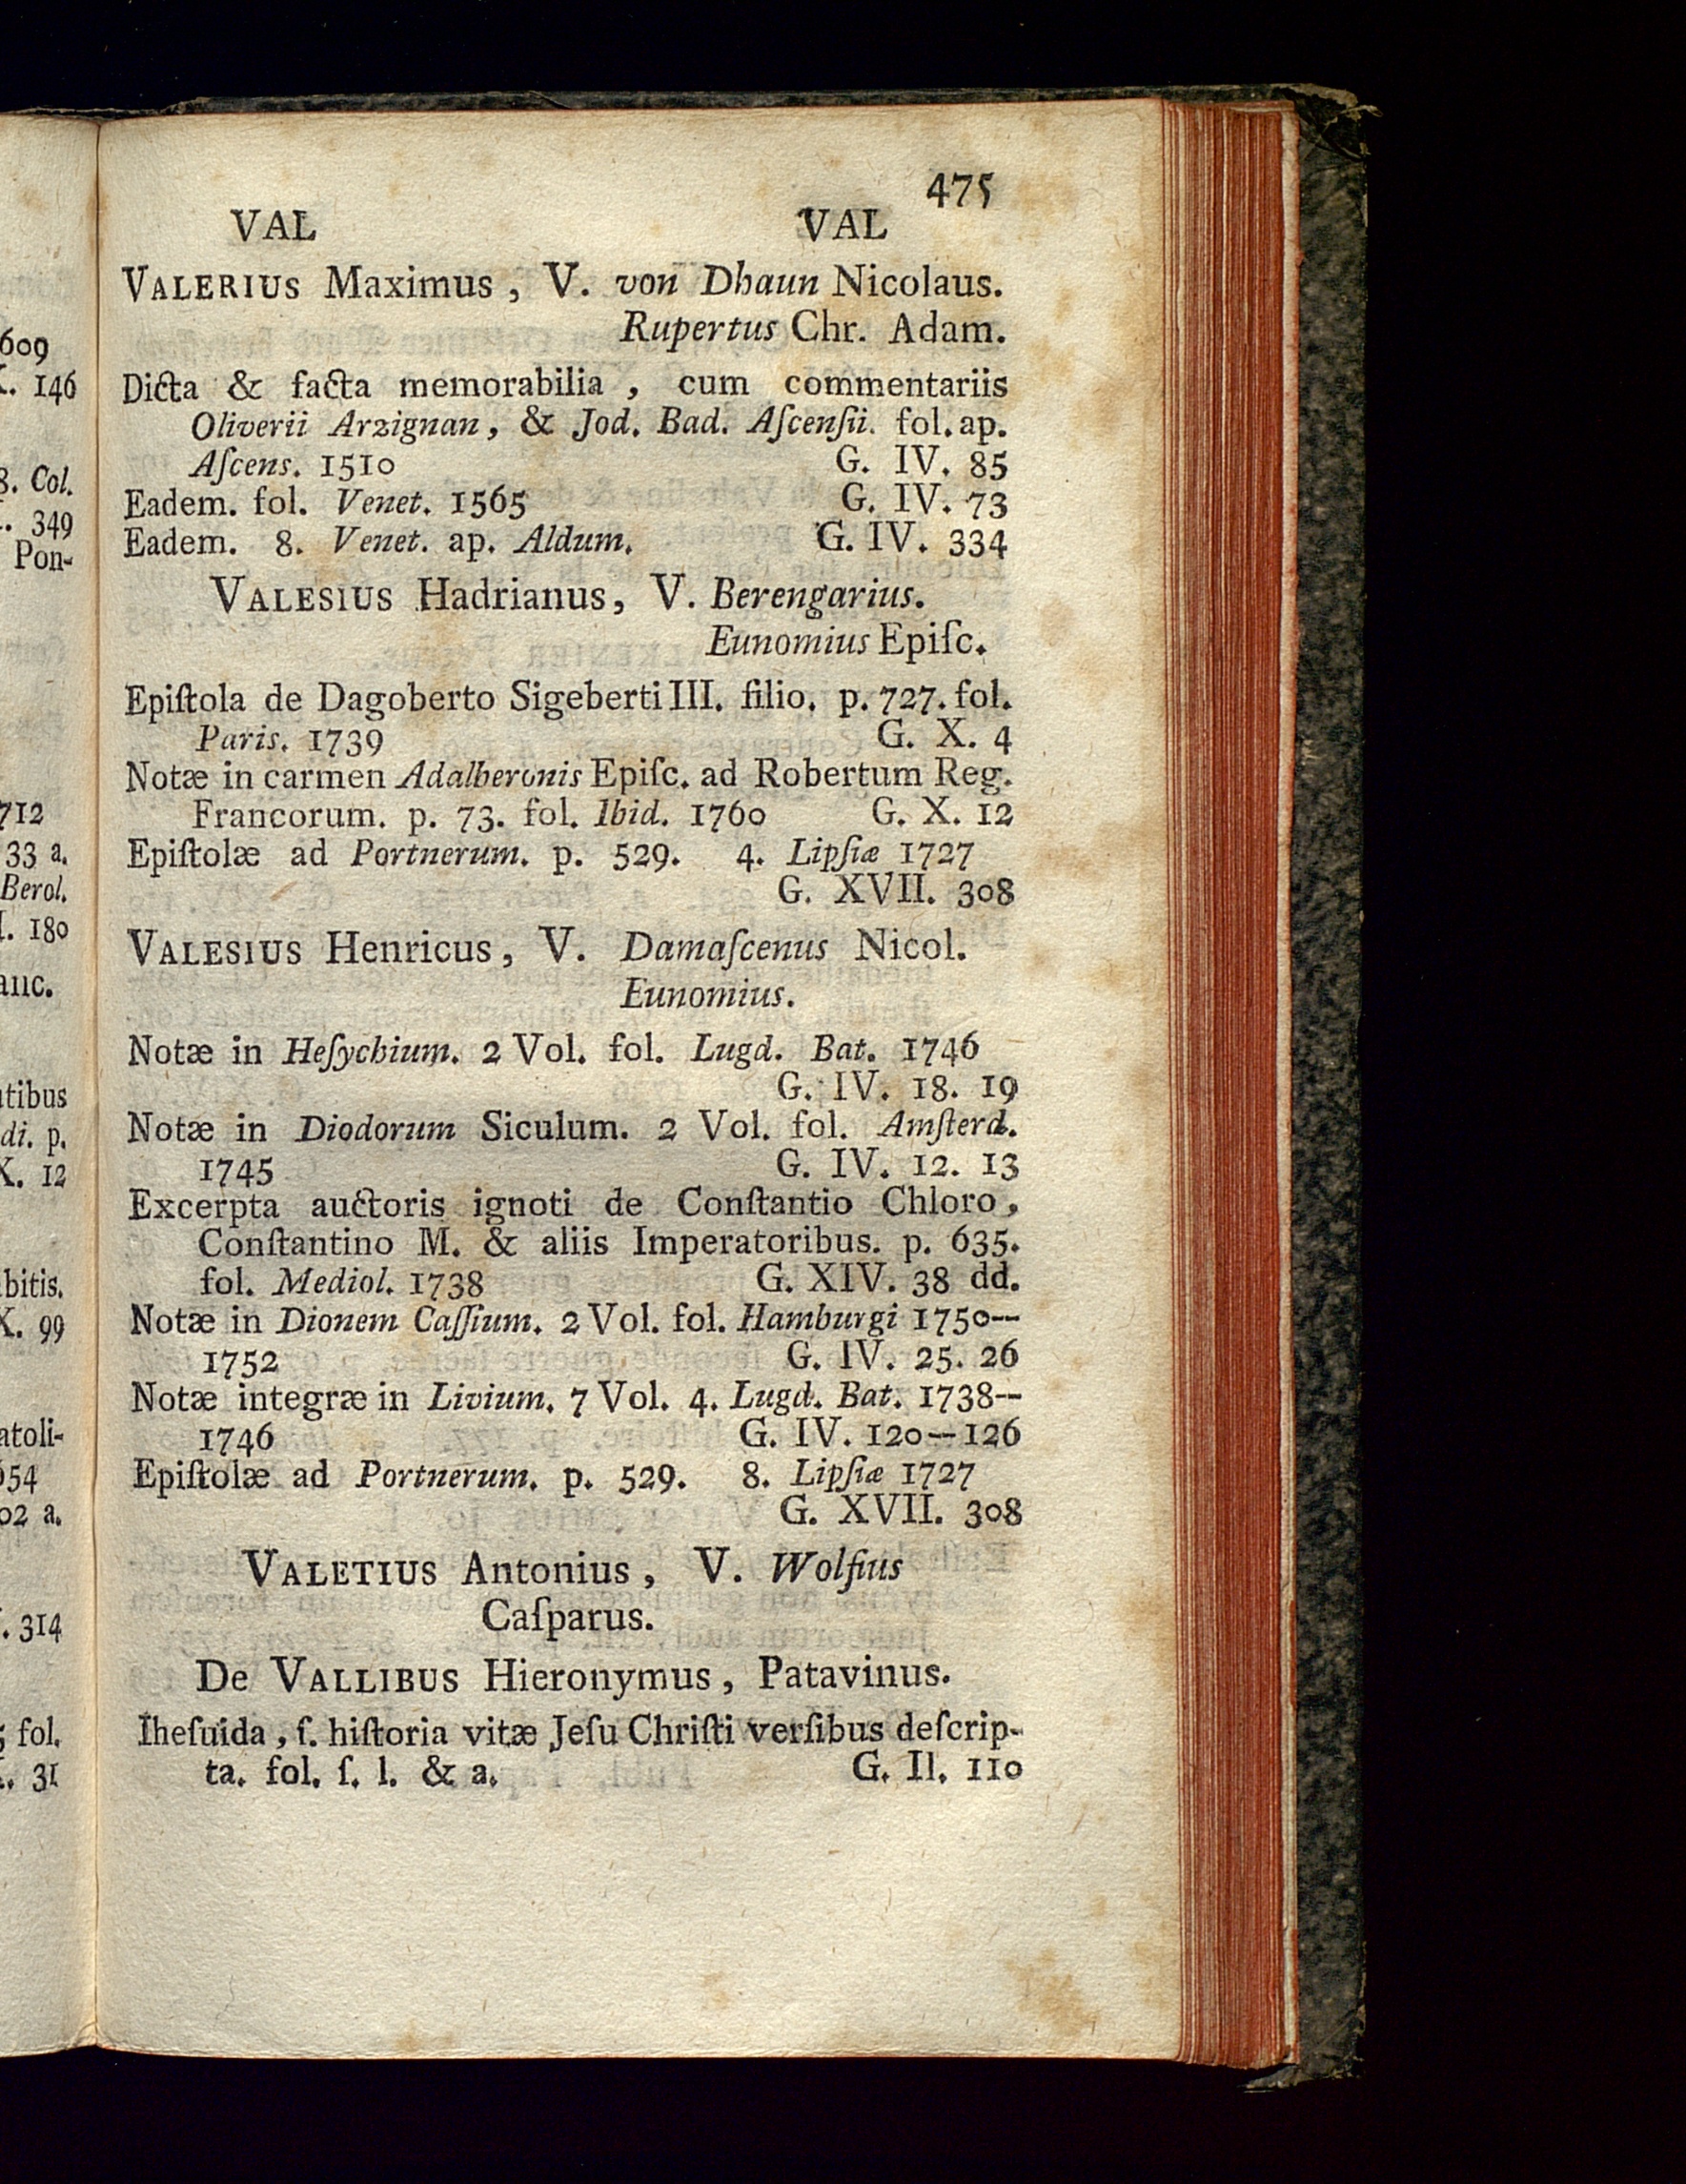 609
. 146
8. Col.
. 349
Pon-
712
33 a.
Berol.
. 180
anc.
tibus
di. p.
X. 12
bitis.
X. 99
atoli-
654
02 a.
. 314
fol.
. 31
475
VAL VAL
VALERIUS Maximus, V. von Dhaun Nicolaus.
Rupertus Chr. Adam.
Dicta & facta memorabilia, cum commentariis
Oliverii Arzignan, & Jod. Bad. Aſcenſii. fol. ap.
Aſcens. 1510 G. IV. 85
Eadem. fol. Venet. 1565 G. IV. 73
Eadem. 8. Venet. ap. Aldum. G. IV. 334
VALESIUS Hadrianus, V. Berengarius.
Eunomius Epiſc.
Epiſtola de Dagoberto Sigeberti III. filio. p. 727. fol.
Paris. 1739 G. X. 4
Notæ in carmen Adalberonis Epiſc. ad Robertum Reg.
Francorum. p. 73. fol. Ibid. 1760 G. X. 12
Epiſtolæ ad Portnerum. p. 529. 4. Lipſiæ 1727
G. XVII. 308
VALESIUS Henricus, V. Damaſcenus Nicol.
Eunomius.
Notæ in Heſychium. 2 Vol. fol. Lugd. Bat. 1746
G. IV. 18. 19
Notæ in Diodorum Siculum. 2 Vol. fol. Amſterd.
1745 G. IV. 12. 13
Excerpta auctoris ignoti de Conſtantio Chloro,
Conſtantino M. & aliis Imperatoribus. p. 635.
fol. Mediol. 1738 G. XIV. 38 dd.
Notæ in Dionem Caſſium. 2 Vol. fol. Hamburgi 1750—
1752 G. IV. 25. 26
Notæ integræ in Livium. 7 Vol. 4. Lugd. Bat. 1738—
1746 G. IV. 120—126
Epiſtolæ ad Portnerum. p. 529. 8. Lipſiæ 1727
G. XVII. 308
VALETIUS Antonius, V. Wolfius
Caſparus.
De VALLIBUS Hieronymus, Patavinus.
Iheſuida, ſ. hiſtoria vitæ Jeſu Chriſti verſibus deſcrip-
ta. fol. ſ. l. & a. G. II. 110